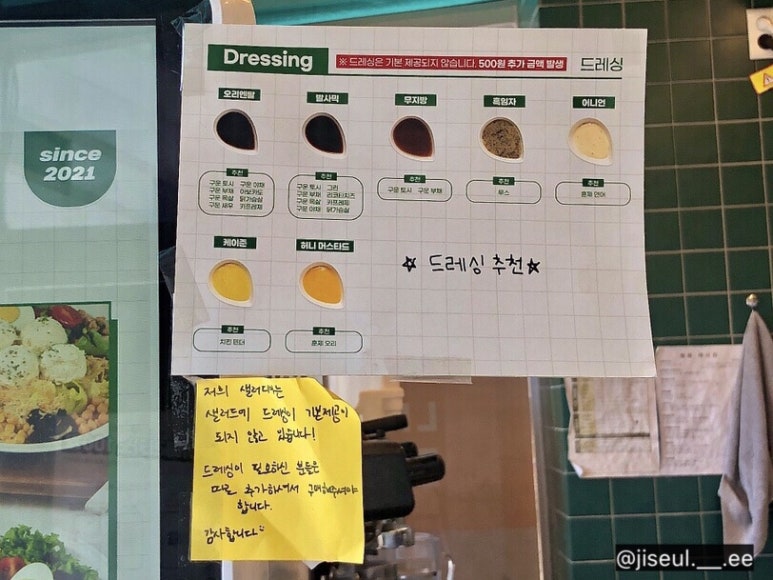 Dressing
※ 드레싱은 기본 제공되지 않습니다. 500원 추가 금액 발생
드레싱
오리엔탈
발사믹
무지방
흑임자
어니언
추천
구운 토시 구운 야채
구운 부채 아보카도
구운 목살 닭가슴살
구운 새우 카프레제
추천
구운 토시 그린
구운 부채 리코타치즈
구운 목살 카프레제
구운 야채 닭가슴살
추천
구운 토시 구운 부채
추천
추천
훈제 연어
케이준
허니 머스타드
☆ 드레싱 추천 ☆
추천
치킨 텐더
추천
훈제 오리
since
2021
저희 샐러디는
샐러드에 드레싱이 기본제공이
되지 않고 있습니다!
드레싱이 필요하신 분들은
따로 추가하셔서 구매해주셔야
합니다.
감사합니다
@jiseul.__.ee